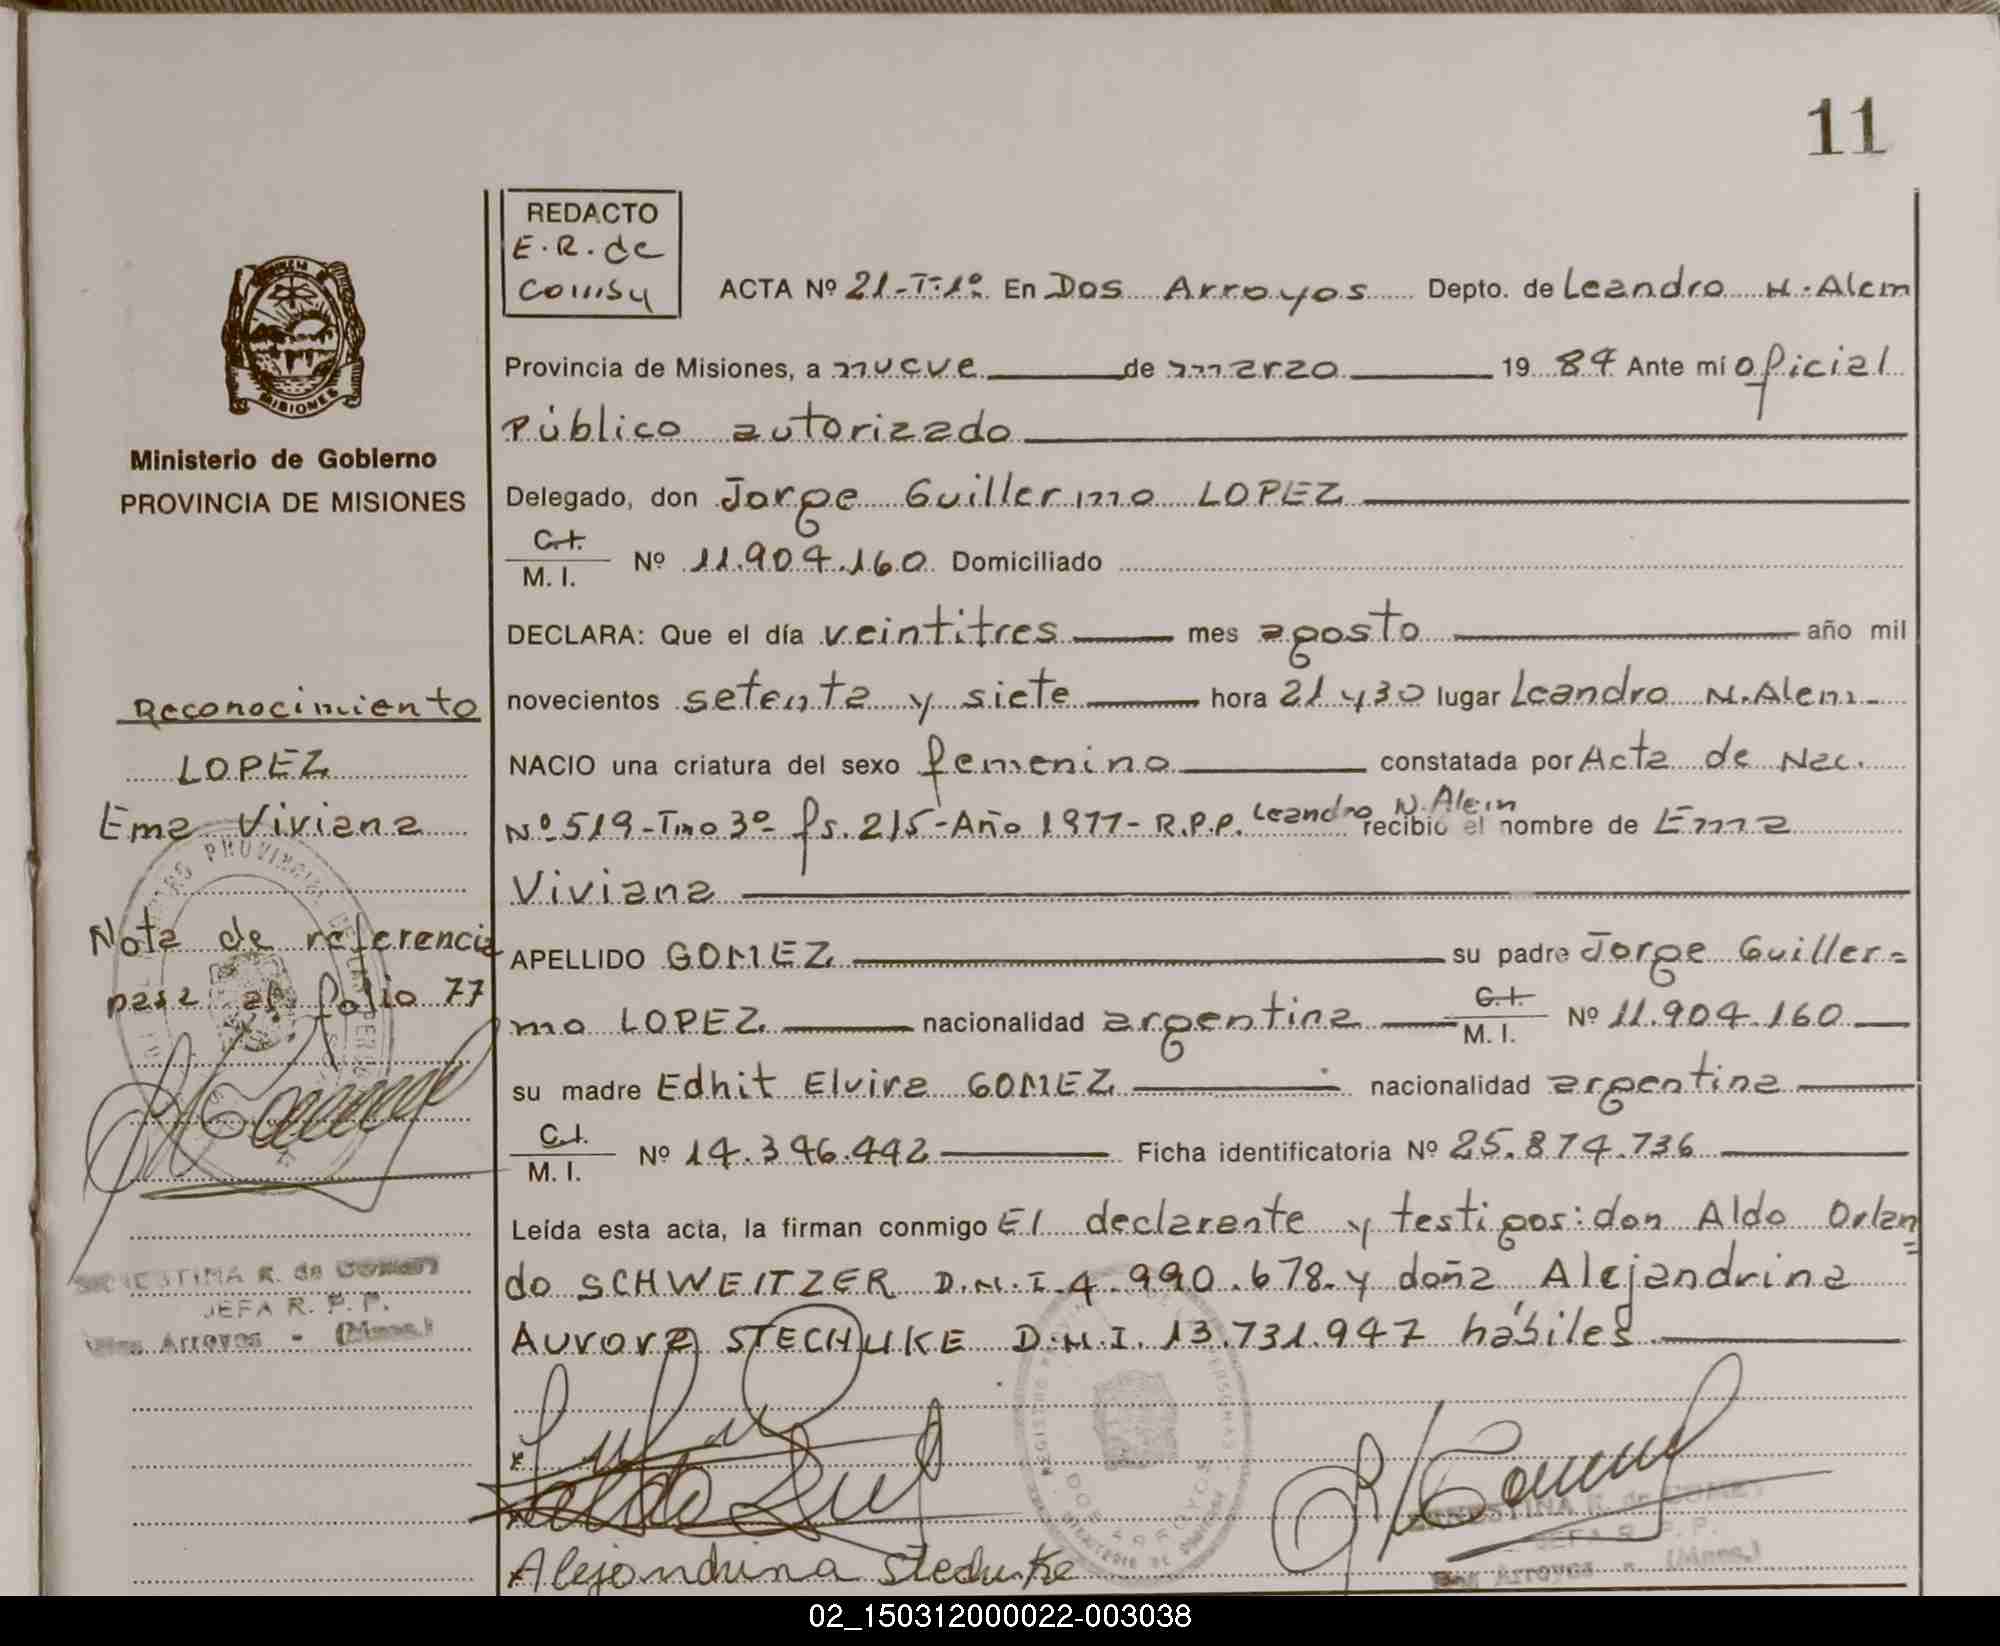 11
REDACTO
E. R. de
ACTA Nº 21-Tº1º En Dos Arroyos Depto. de Leandro N. Alem
Provincia de Misiones, a nueve de marzo 1984 Ante mí oficial
Público autorizado
Delegado, don Jorge Guillermo LOPEZ
C.I.
M. I. Nº 11.904.160 Domiciliado
DECLARA: Que el día veintitres mes agosto año mil
novecientos setenta y siete hora 21 y 30 lugar Leandro N. Alem-
NACIO una criatura del sexo femenino constatada por Acta de Nac.
Nº 519-Tmo 3º- fs. 215-Año 1977- R.P.P. Leandro N. Alem recibió el nombre de Ema
Viviana
APELLIDO GOMEZ su padre Jorge Guiller=
mo LOPEZ nacionalidad argentina C.I.
M. I. Nº 11.904.160
su madre Edhit Elvira GOMEZ nacionalidad argentina
C.I.
M. I. Nº 14.396.442 Ficha identificatoria Nº 25.874.736
Leída esta acta, la firman conmigo El declarante y testigos: don Aldo Orlan=
do SCHWEITZER D.N.I. 4.990.678 y doña Alejandrina
Aurora STECHUKE D.N.I. 13.731.947 hábiles
Alejandrina Stechuke
JEFA R. P. P.
Dos Arroyos - (Mnes.)
REGISTRO
DOS ARROYOS
PROVINCIA
MISIONES
Ministerio de Gobierno
PROVINCIA DE MISIONES
Reconocimiento
LOPEZ
Ema Viviana
Nota de referencia
pasa al folio 77
ERNESTINA R. de
JEFA R. P. P.
Dos Arroyos - (Mnes.)
02_150312000022-003038